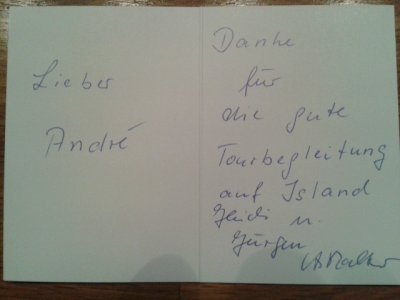 Lieber
André
Danke
für
die gute
Tourbegleitung
auf Island
Heidi u.
Jürgen